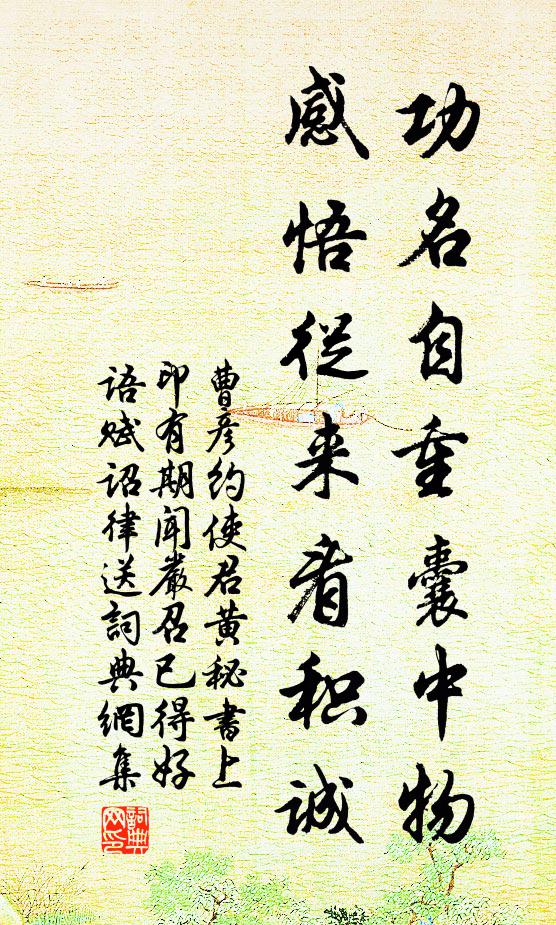 功名自重囊中物
感悟從来看积诚
曹彦约使君黄秘书上
印有期闻嚴召已得好
语赋诏律送詞典網集
詞典
网印